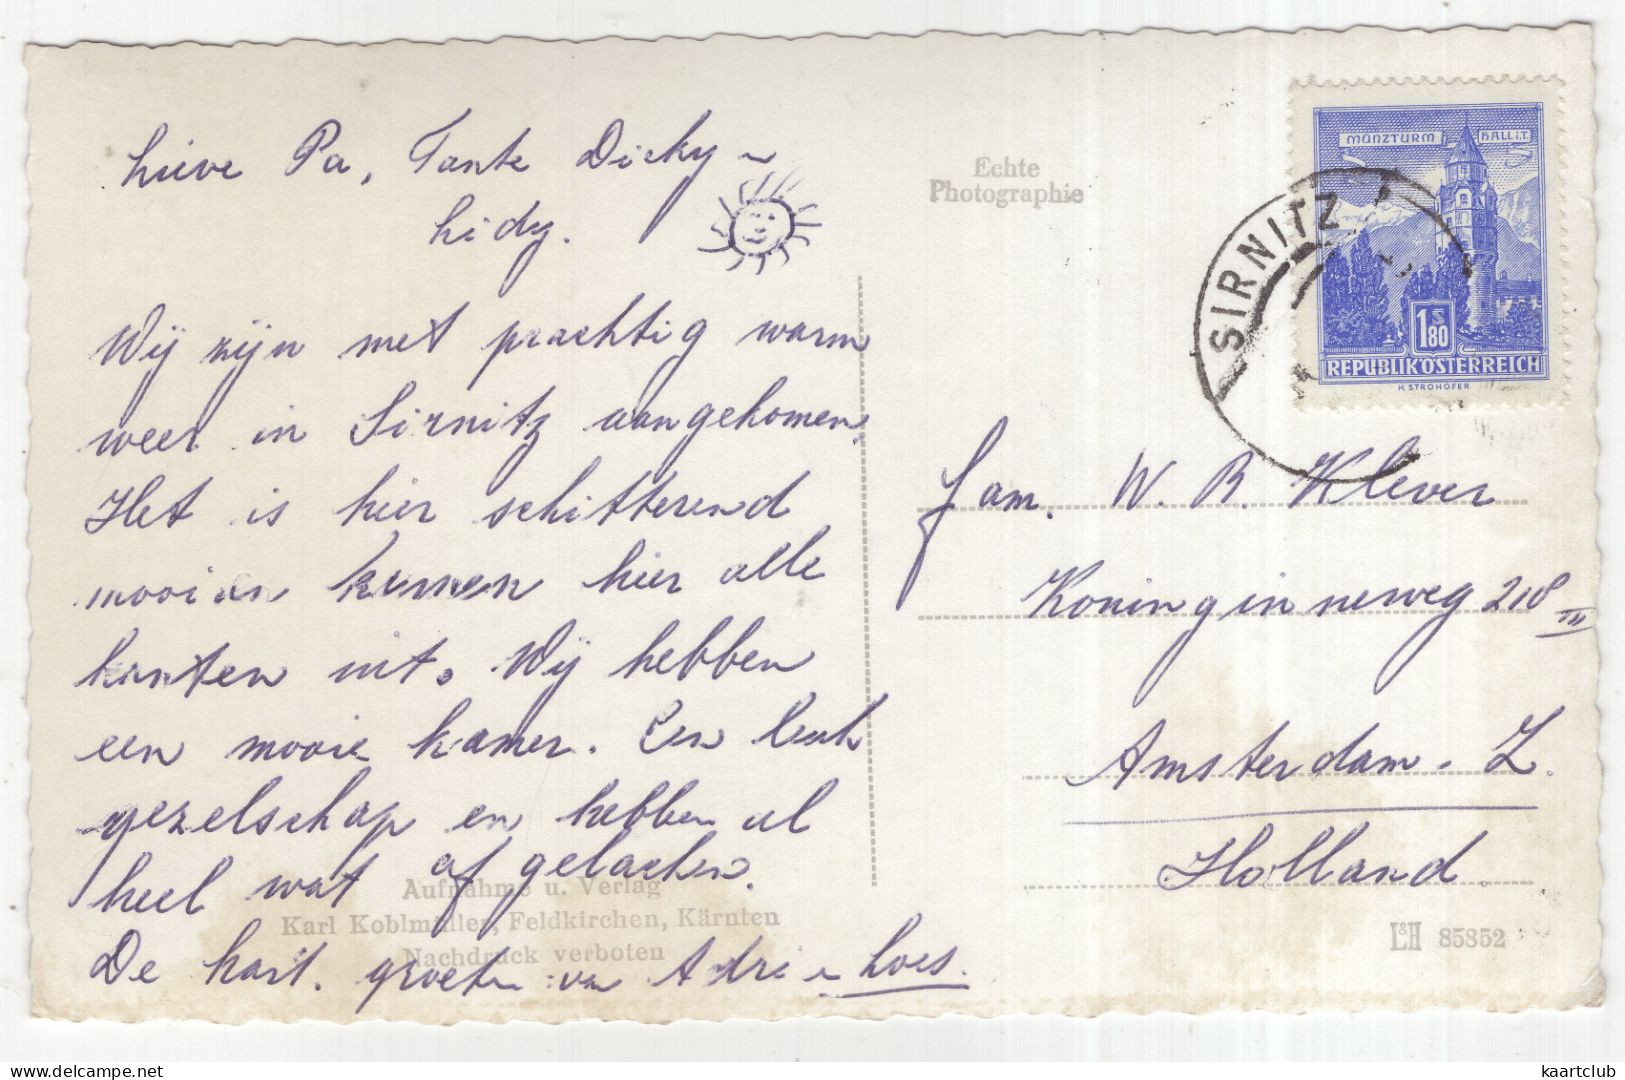 Lieve Pa, Tante Dicky en
Lidy.
Wij zijn met prachtig warm
weer in Sirnitz aangekomen.
Het is hier schitterend
mooi en kunnen hier alle
kanten uit. Wij hebben
een mooie kamer. Een leuk
gezelschap en hebben al
heel wat af gelachen.
De hart. groeten van Adri en Loes.
Aufnahme u. Verlag
Karl Koblmüller, Feldkirchen, Kärnten
Nachdruck verboten
Echte
Photographie
MÜNZTURM HALL i.T.
SIRNITZ
1 S 80
REPUBLIK ÖSTERREICH
H. STROHOFER
Fam. W. B. Klever
Koninginneweg 218 III
Amsterdam. Z.
Holland.
L&H 85852
kaartclub